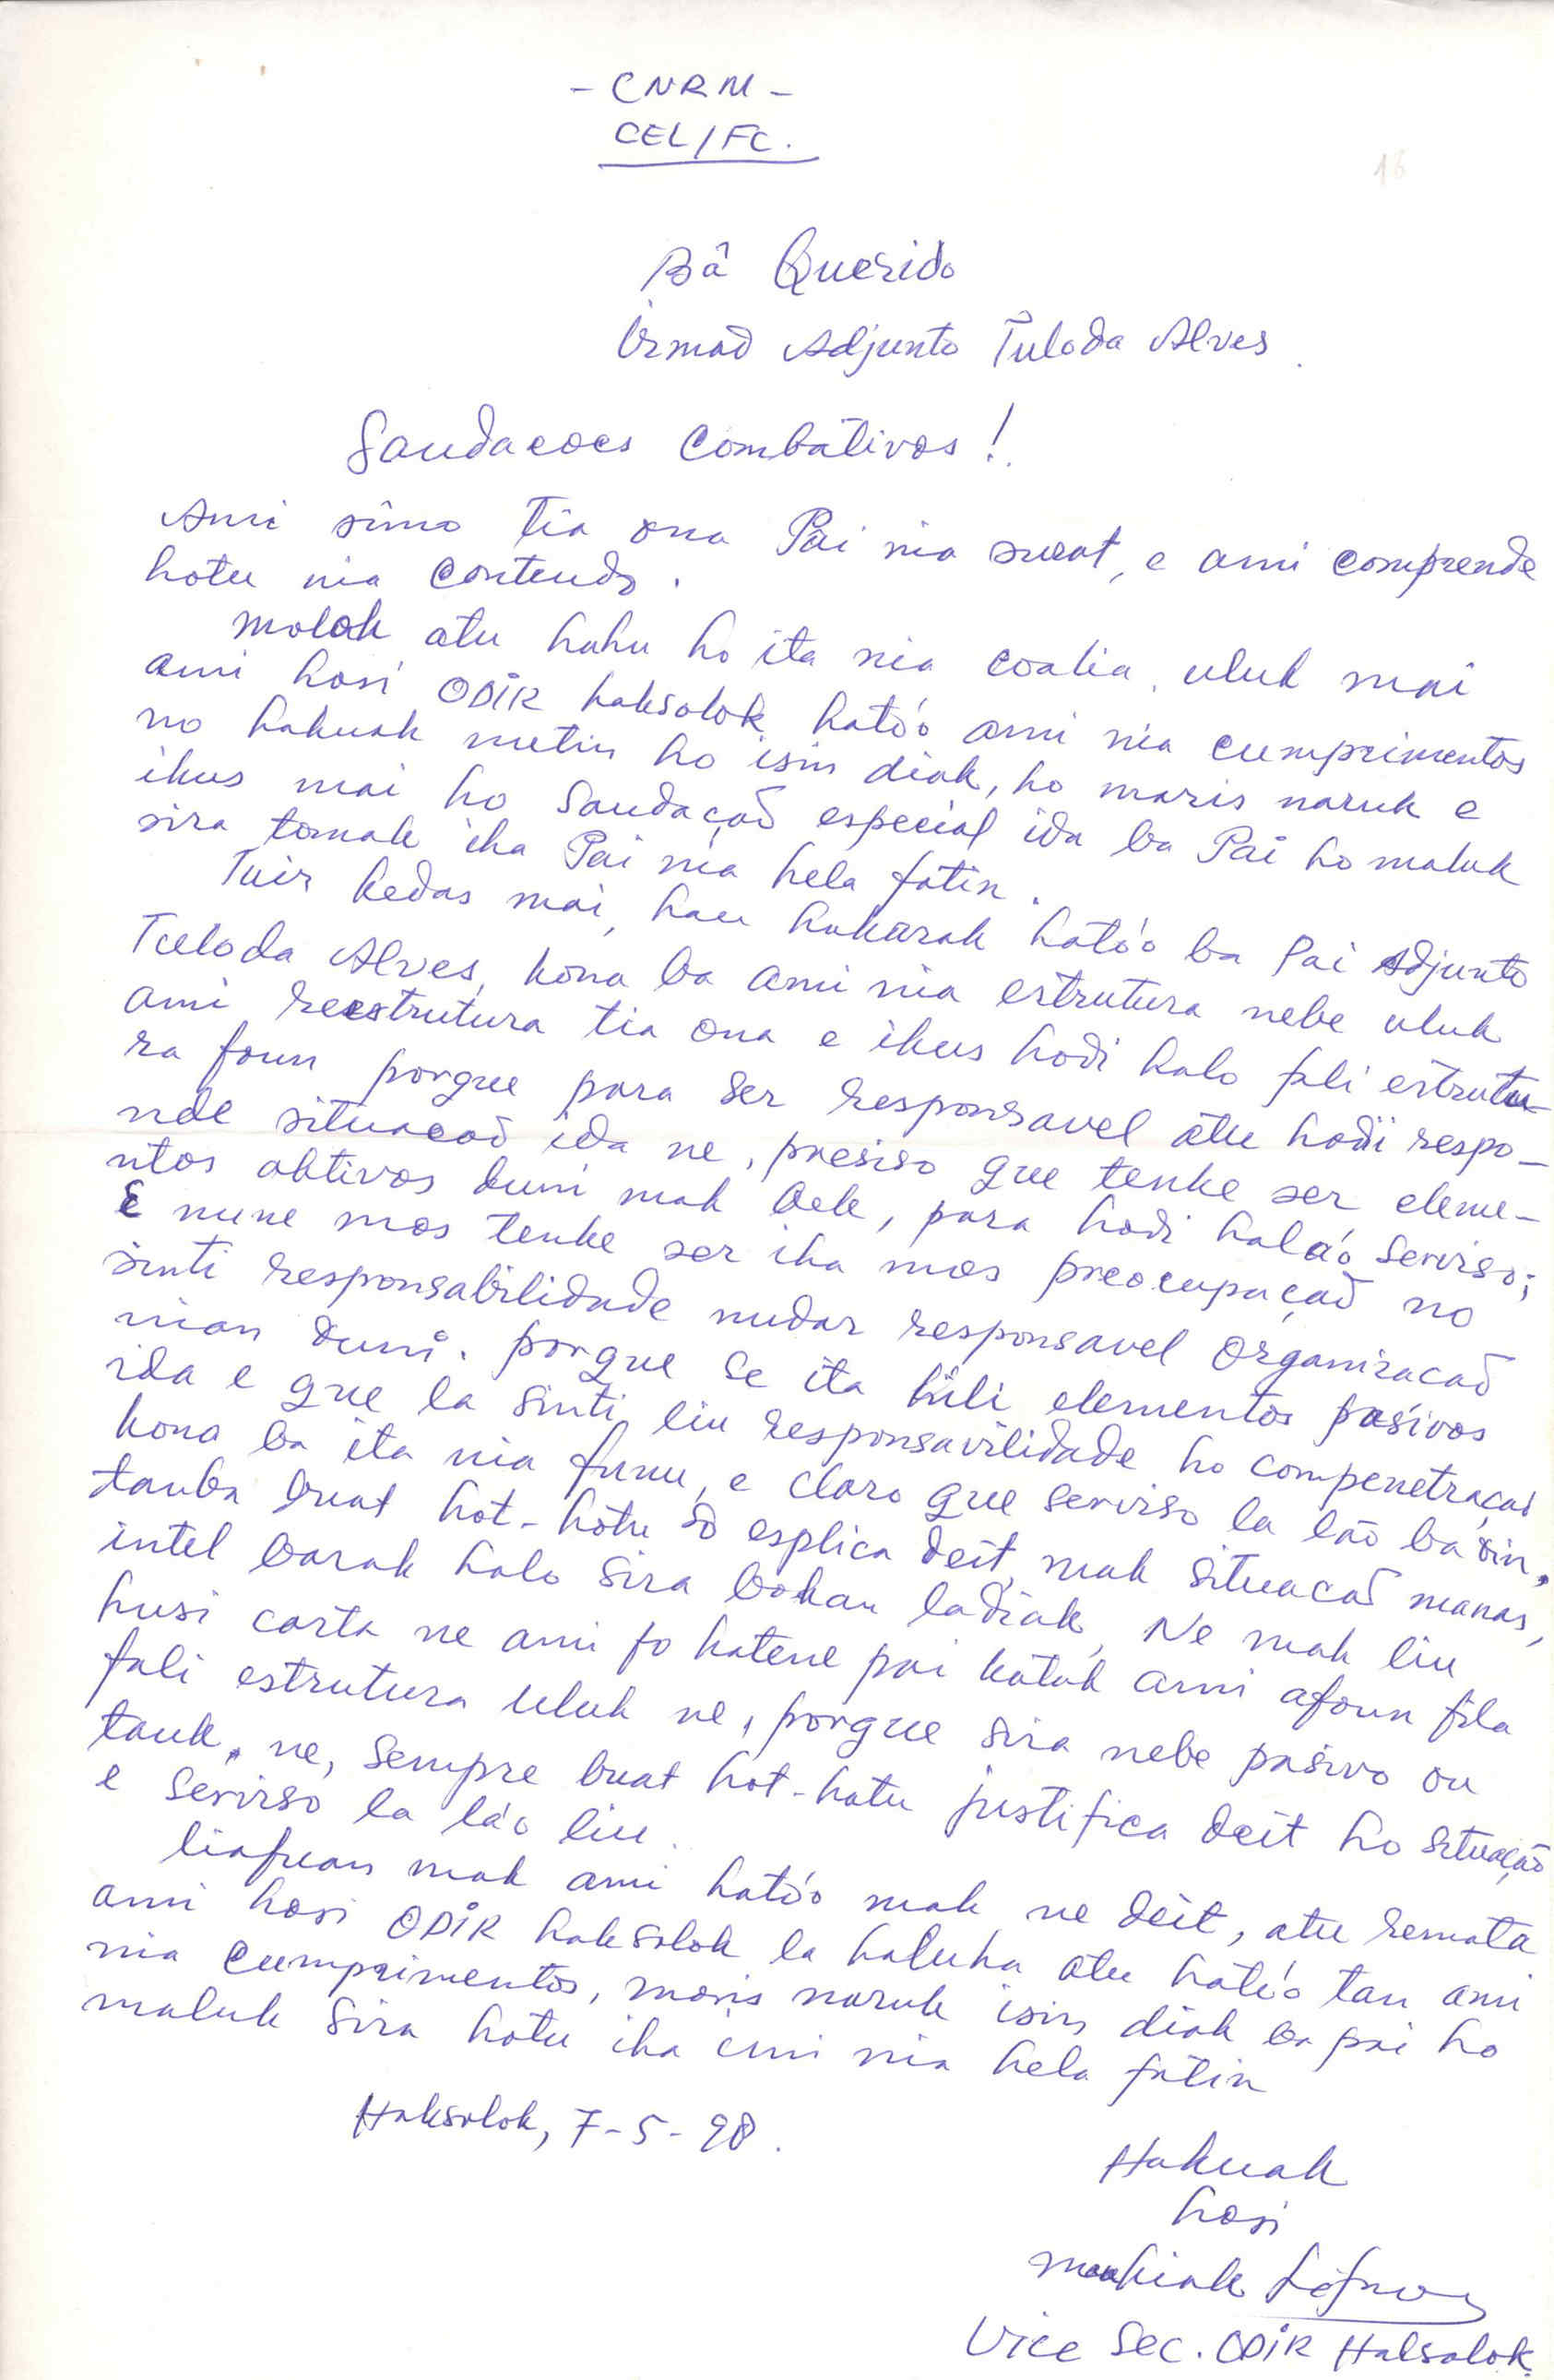 - CNRM -
CEL/FC.
16
Bâ Querido
Irmaõ Adjunto Tuloda Alves.
Saudacoes Combativos!
Ami simo tia ona Pai nia surat, e ami comprende
hotu nia conteudo.
Molok atu hahu ho ita nia coalia, uluk mai
ami hosi ODIR haksolok ható'o ami nia cumprimentos
no hakuak metin ho isin diak, ho maris naruk e
ikus mai ho Saudaçaõ especial ida ba Pai ho maluk
sira tomak iha Pai nia hela fatin.
Tuir kedas mai, hau hakarakható'o ba Pai Adjunto
Tuloda Alves, kona ba ami nia estrutura nebe uluk
ami reestrutura tia ona e ikus hodi halo fali estrutu-
ra foun porque para ser responsavel atu hodi respo-
nde situacaõ ida ne, presiso que tenke ser eleme-
ntos aktivos duni mak bele, para hodi halaó servisо;
E nune mos tenke ser iha mos preocupaçaõ no
sinti responsabilidade nudar responsavel organizacaõ
nian duni. porque se ita hili elementos pasivos
ida e que la sinti liu responsavilidade ho compenetraçaõ
kona ba ita nia funu, e claro que servisо la laõ ba oin,
tamba buat hot-hotu sõ esplica deit, mak situacaõ manas,
intel barak halo sira bokan ladiak, Ne mak liu
husi carta ne ami fo hatene pai katak ami afoun fila
fali estrutura uluk ne, porque sira nebe pasivo ou
tauk, ne, Sempre buat hot-hotu justifica deit ho situaçaõ
e Servisо la laó liu.
Liafuan mak ami ható'o mak ne deit, atu remata
ami hosi ODIR haksolok la haluha atu ható'o tan ami
nia cumprimentos, moris naruk isin diak ba pai ho
maluk sira hotu iha imi nia hela fatin
Haksolok, 7-5-98.
Hakuak
hosi
Vice Sec. ODIR Haksolok.